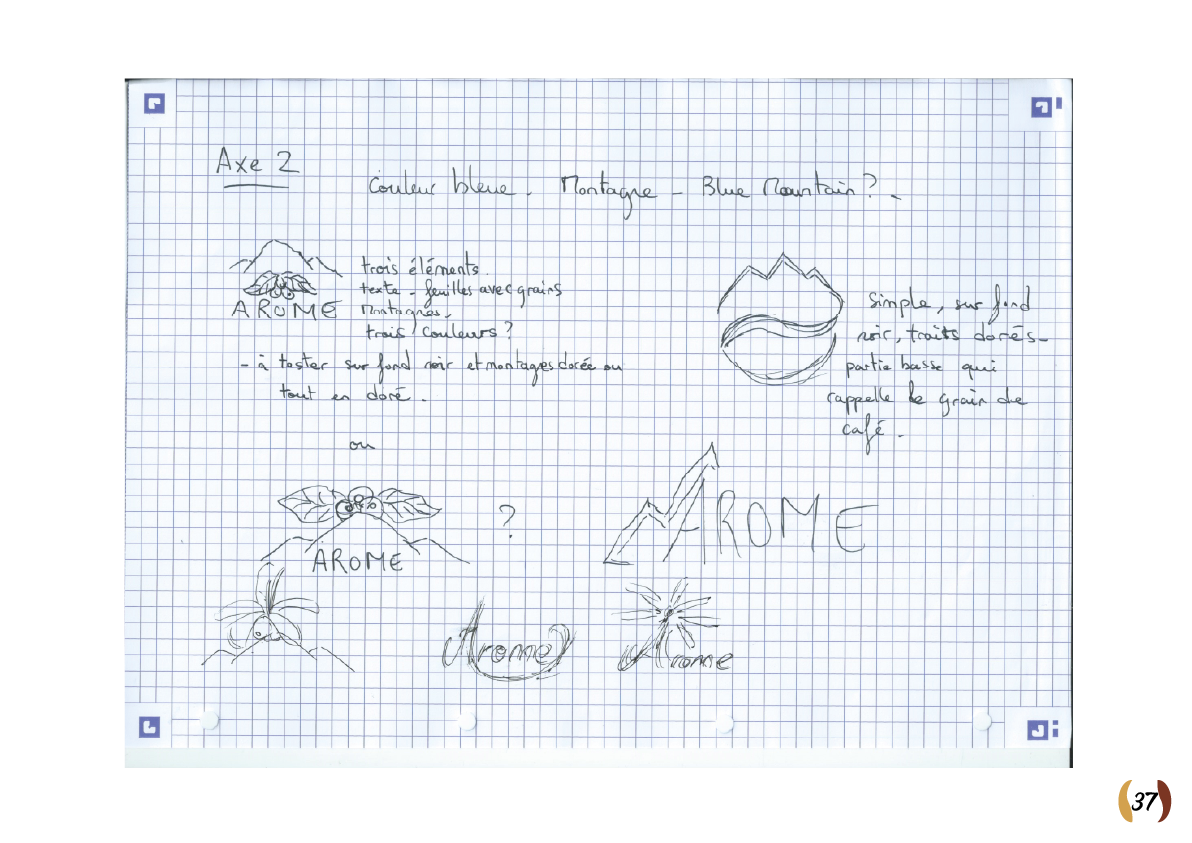 Axe 2
Couleur bleue. Montagne - Blue Mountain ?.
trois éléments.
texte - feuilles avec grains
Montagnes.
trois couleurs ?
AROME
- à tester sur fond noir et montages dorée ou
tout en doré.
Simple, sur fond
noir, traits dorés -
partie basse qui
rappelle le grain de
café.
ou
AROME
?
AROME
Arome
Arome
37